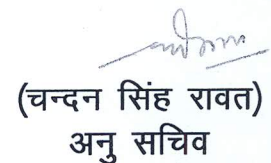 (चन्दन सिंह रावत)
अनु सचिव